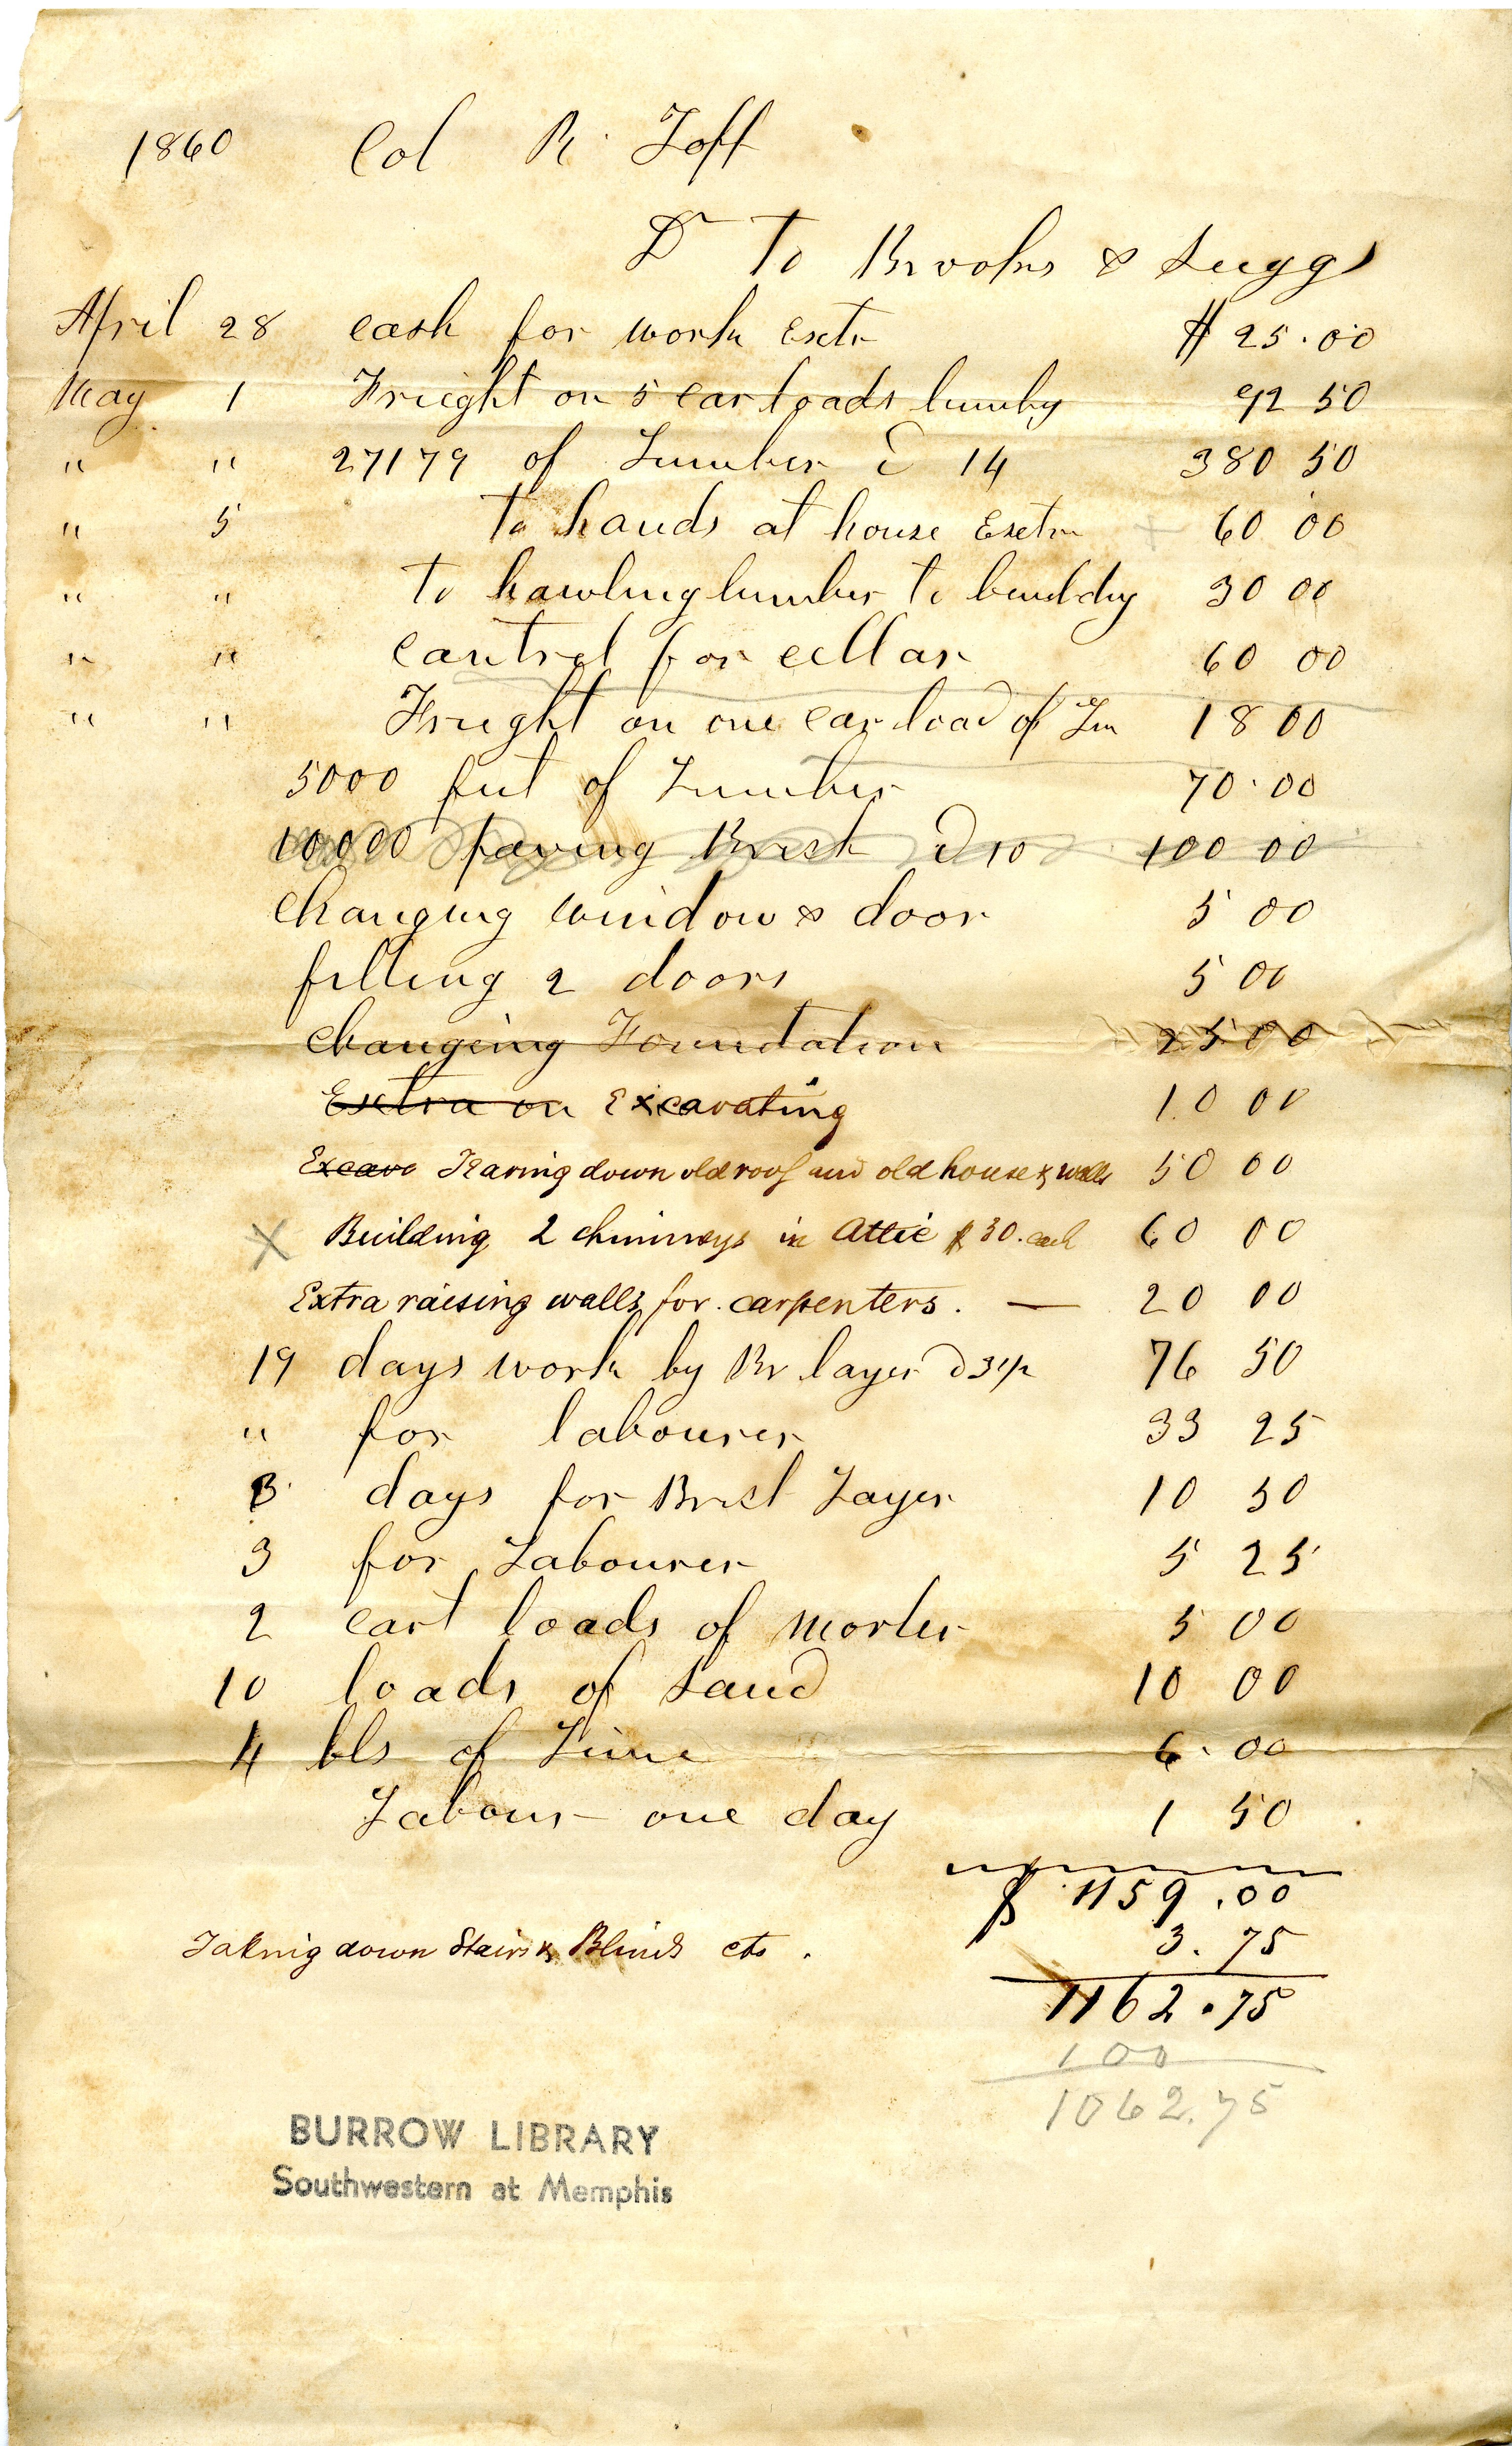 1860 Col R. Toff
Dr To Brooks & Suggs
April 28 cash for work Exctr $ 25.00
May 1 Frieght on 5 car loads lumby 92 50
" " 27179 of Lumber @ 14 380 50
" 5 to hands at house Exetra 60 00
" " to hawling lumber to buildig 30 00
" " cantrel for cellar 60 00
" " Frieght on one car load of Lm 18 00
5000 feet of Lumber 70.00
10000 paving Brick @ 10 100 00
changing window & door 5 00
filling 2 doors 5 00
changeing Foundation 25 00
Extra on Excavating 10 00
Excava Tearing down old roof and old house & walls 50 00
X Building 2 chimneys in Attic $ 30. each 60 00
Extra raising walls for carpenters. — 20 00
19 days work by Br layer @ 3 1/2 76 50
" for labourer 33 25
3 days for Brick Layer 10 50
3 for Labourer 5 25
2 cart loads of morter 5 00
10 loads of sand 10 00
4 bls of Lime 6.00
Labour one day 1 50
$ 1159.00
Taking down Stairs & Blinds etc. 3.75
1162.75
100
1062.75
BURROW LIBRARY
Southwestern at Memphis